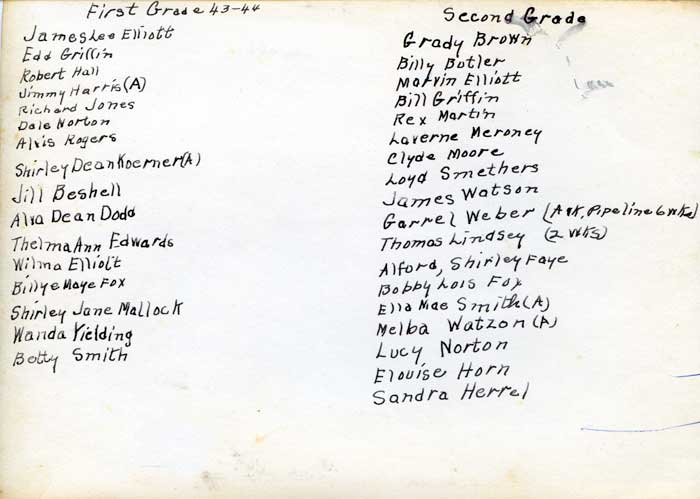 First Grade 43-44
James Lee Elliott
Edd Griffin
Robert Hall
Jimmy Harris (A)
Richard Jones
Dale Norton
Alvis Rogers
Shirley Dean Koerner (A)
Jill Beshell
Alva Dean Dodd
Thelma Ann Edwards
Wilma Elliott
Billye Maye Fox
Shirley Jane Mallock
Wanda Yielding
Betty Smith
Second Grade
Grady Brown
Billy Butler
Marvin Elliott
Bill Griffin
Rex Martin
Laverne Meroney
Clyde Moore
Loyd Smethers
James Watson
Garrel Weber (Ark, Pipeline 6 wks)
Thomas Lindsey (2 wks)
Alford, Shirley Faye
Bobby Lois Fox
Ella Mae Smith (A)
Melba Watzon (A)
Lucy Norton
Elouise Horn
Sandra Herrel